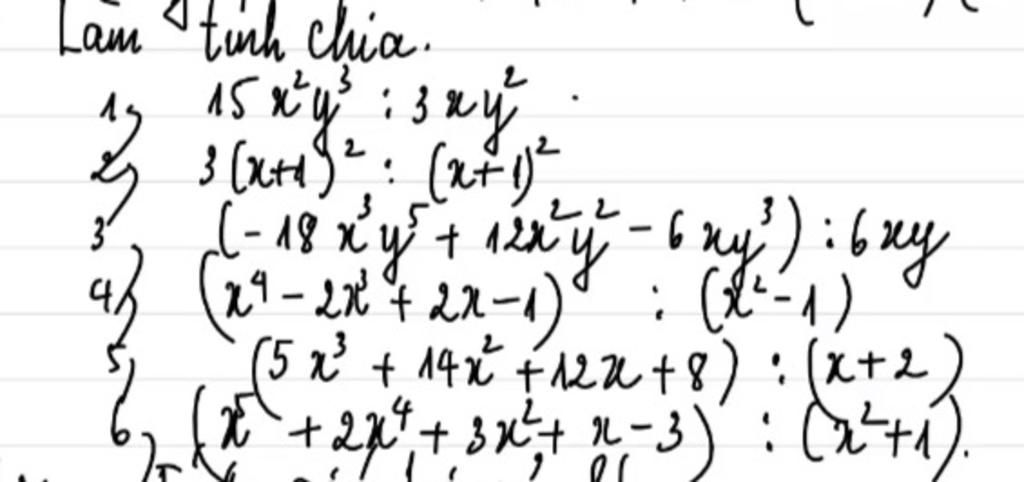 Làm tính chia.
1, 15x²y³ : 3xy² .
2, 3(x+1)² : (x+1)²
3, (-18x³y⁵ + 12x²y² - 6xy³) : 6xy
4, (x⁴ - 2x³ + 2x - 1) : (x² - 1)
5, (5x³ + 14x² + 12x + 8) : (x + 2)
6, (x⁵ + 2x⁴ + 3x² + x - 3) : (x² + 1).